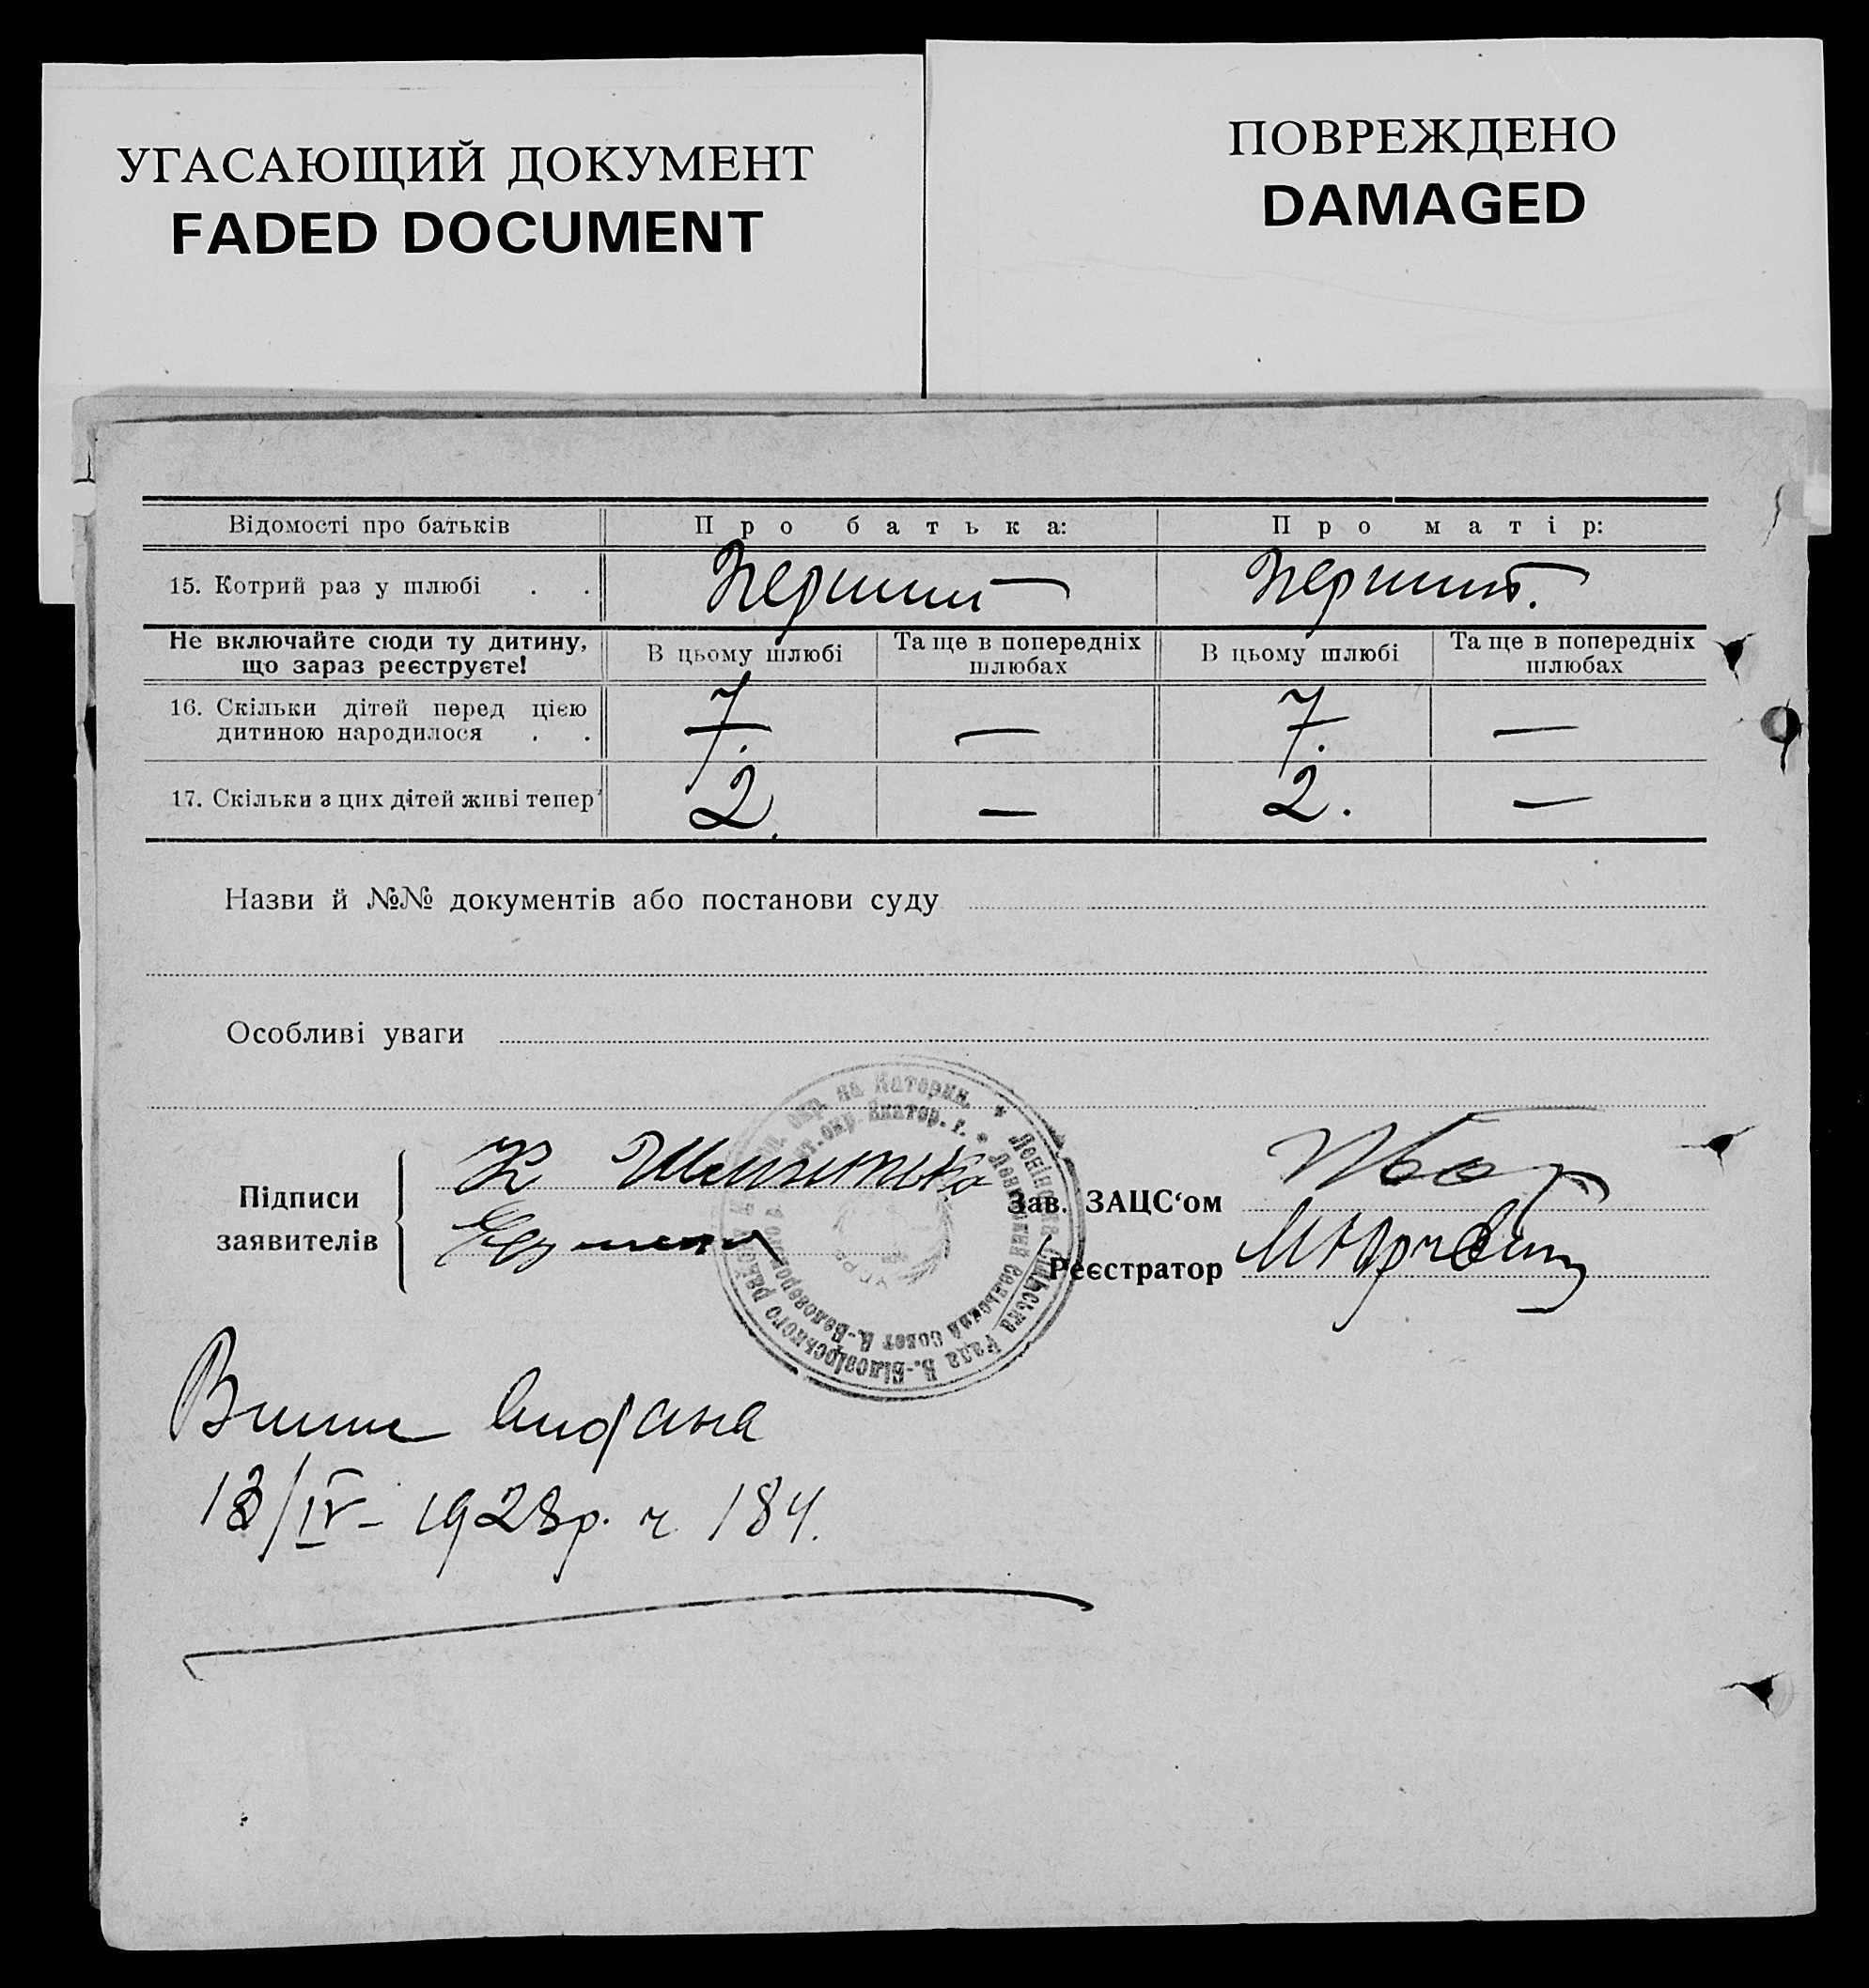 УГАСАЮЩИЙ ДОКУМЕНТ
FADED DOCUMENT
ПОВРЕЖДЕНО
DAMAGED
Відомості про батьків
Про батька:
Про матір:
15. Котрий раз у шлюбі . .
Перший
Перший.
Не включайте сюди ту дитину,
що зараз реєструєте!
В цьому шлюбі
Та ще в попередніх
шлюбах
В цьому шлюбі
Та ще в попередніх
шлюбах
16. Скільки дітей перед цією
дитиною народилося . .
7.
—
7.
—
17. Скільки з цих дітей живі тепер
2.
—
2.
—
Назви й №№ документів або постанови суду
Особливі уваги
Підписи
заявителів
К
Зав. ЗАЦС‘ом
Реєстратор
Ленінська Сільська Рада В.-Білозірського
УСРР
13/IV – 1928р. ч 184.